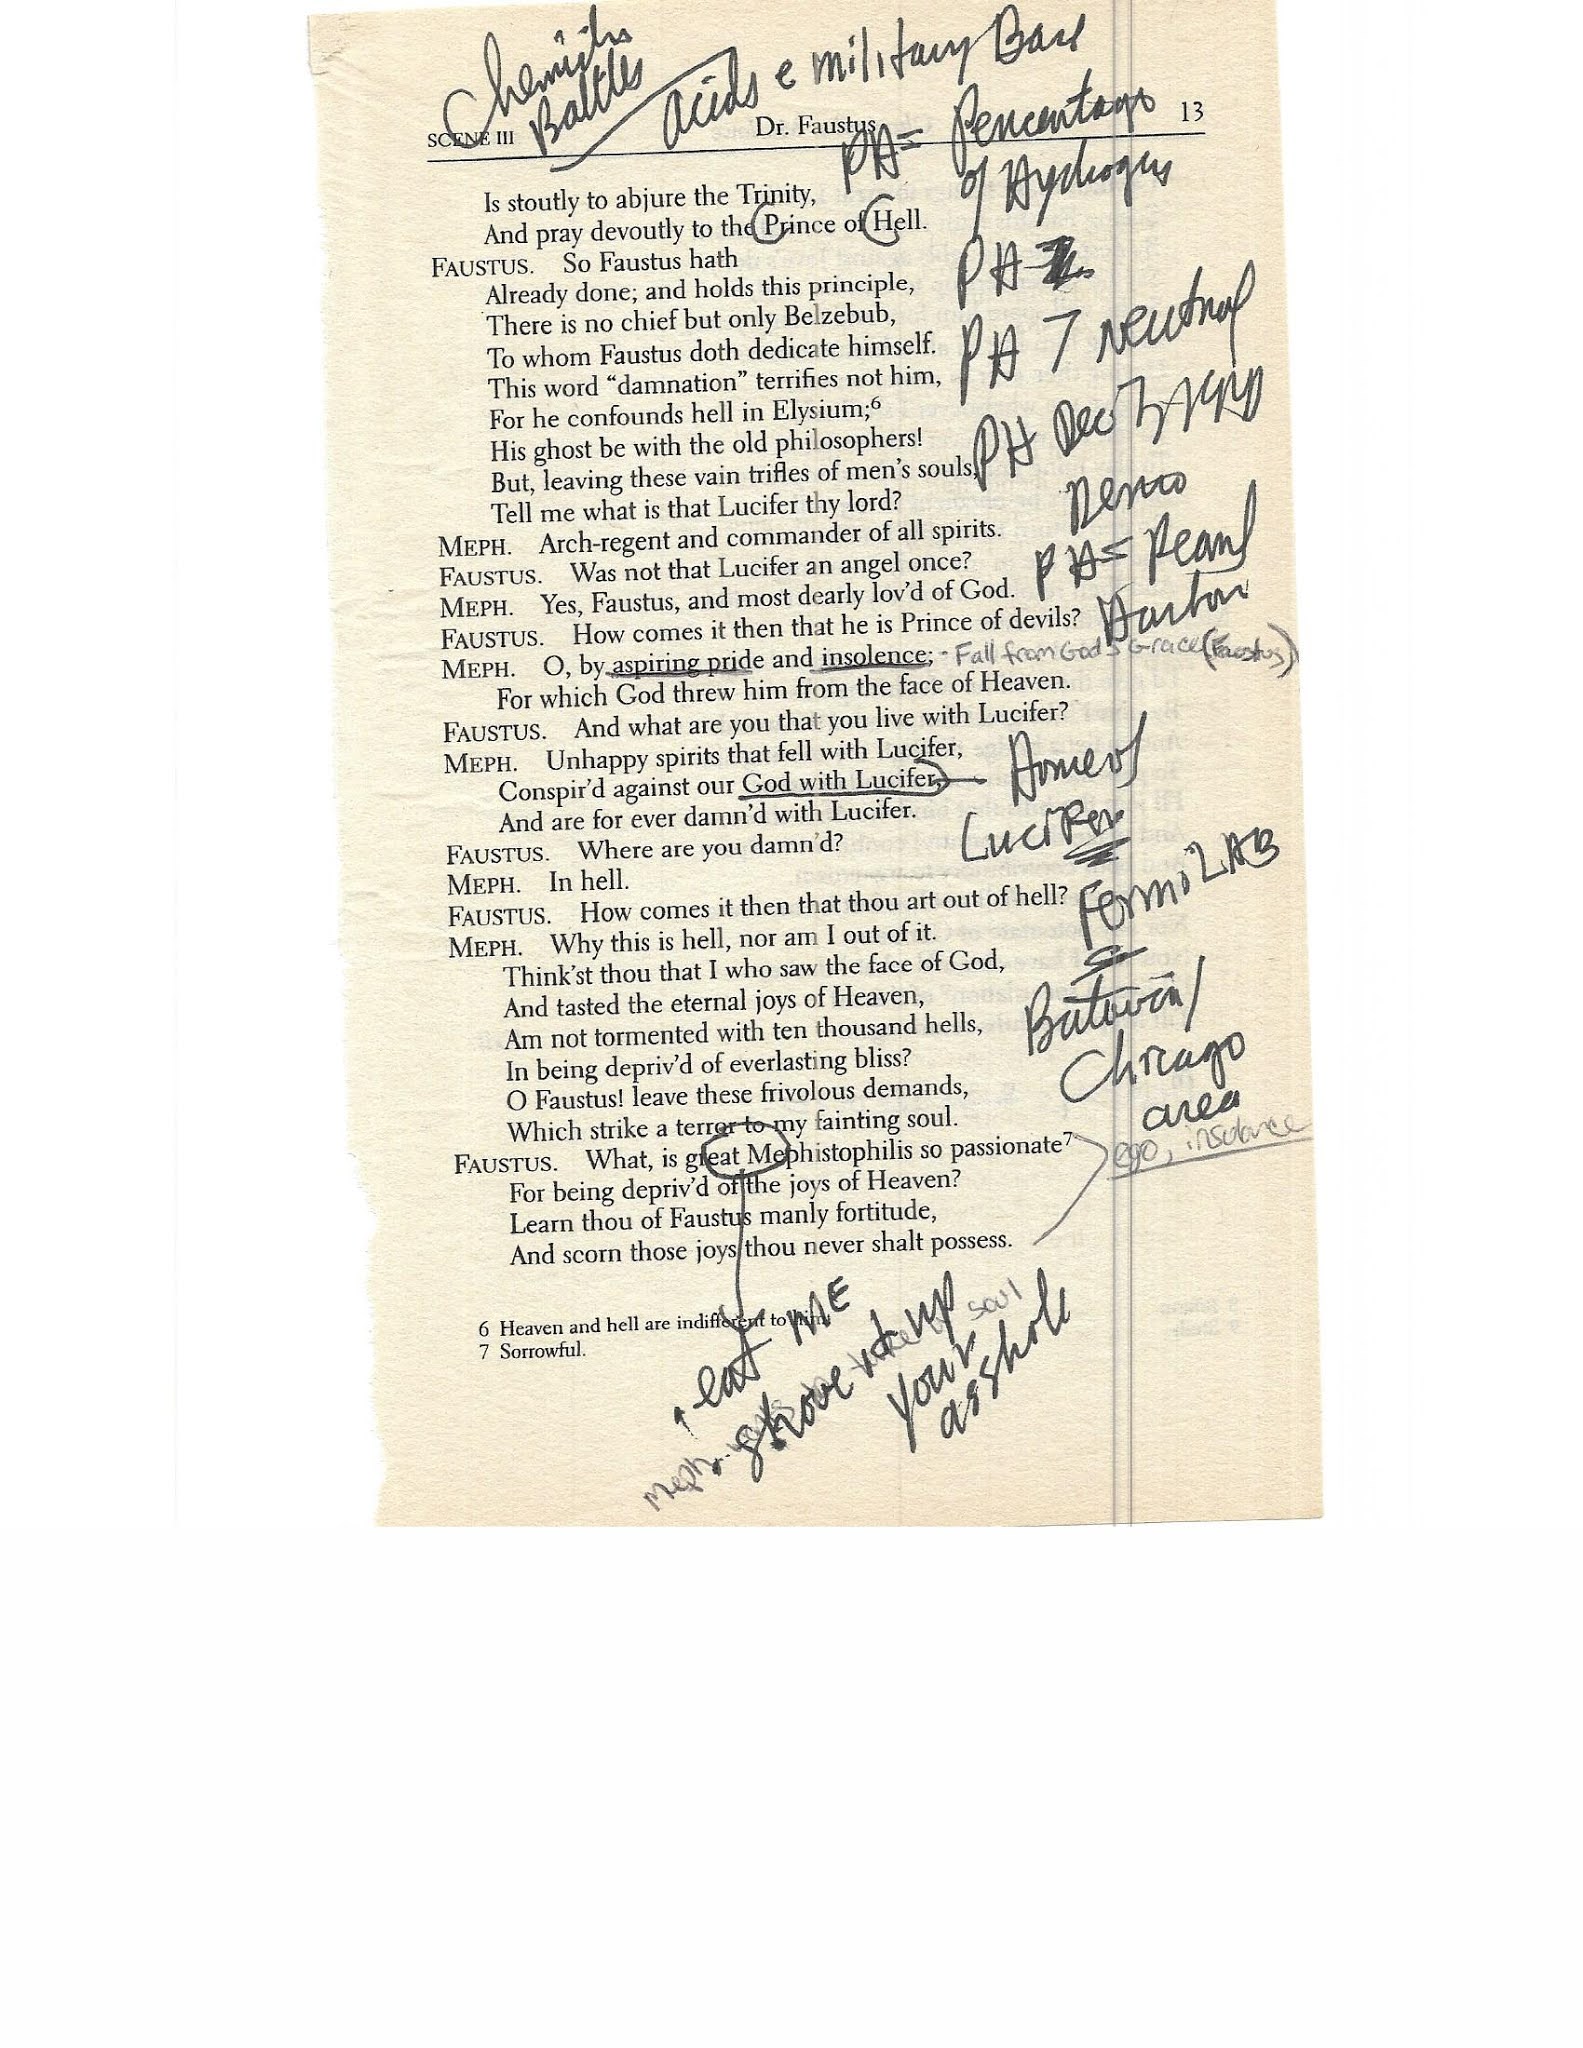 Battles
acids e military Base
SCENE III
Dr. Faustus
13
PH = Percentage
of Hydrogens
Is stoutly to abjure the Trinity,
And pray devoutly to the Prince of Hell.
PH
FAUSTUS. So Faustus hath
Already done; and holds this principle,
There is no chief but only Belzebub,
To whom Faustus doth dedicate himself.
PH 7 Neutral
This word “damnation” terrifies not him,
For he confounds hell in Elysium;6
His ghost be with the old philosophers!
PH Dec 7,
But, leaving these vain trifles of men's souls,
Tell me what is that Lucifer thy lord?
MEPH. Arch-regent and commander of all spirits.
FAUSTUS. Was not that Lucifer an angel once?
PH = Pearl
Harbor
MEPH. Yes, Faustus, and most dearly lov'd of God.
FAUSTUS. How comes it then that he is Prince of devils?
MEPH. O, by aspiring pride and insolence; - Fall from God's Grace (Faustus)
For which God threw him from the face of Heaven.
FAUSTUS. And what are you that you live with Lucifer?
MEPH. Unhappy spirits that fell with Lucifer,
Conspir'd against our God with Lucifer,
Home of
And are for ever damn'd with Lucifer.
Lucifer
FAUSTUS. Where are you damn'd?
MEPH. In hell.
FermiLAB
FAUSTUS. How comes it then that thou art out of hell?
MEPH. Why this is hell, nor am I out of it.
Think'st thou that I who saw the face of God,
And tasted the eternal joys of Heaven,
Am not tormented with ten thousand hells,
In being depriv'd of everlasting bliss?
Chicago
area
O Faustus! leave these frivolous demands,
Which strike a terror to my fainting soul.
FAUSTUS. What, is great Mephistophilis so passionate7
ego, insolence
For being depriv'd of the joys of Heaven?
Learn thou of Faustus manly fortitude,
And scorn those joys thou never shalt possess.
6 Heaven and hell are indifferent to him.
7 Sorrowful.
eat ME
shove it up
your
asshole
Meph. soul